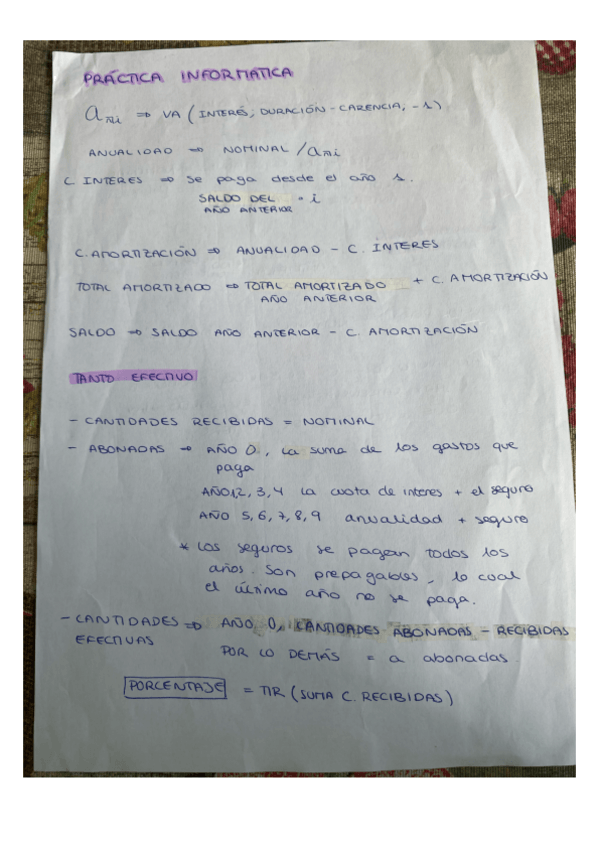 PRÁCTICA INFORMATICA
a n i ⇒ VA (INTERÉS; DURACIÓN - CARENCIA, -1)
ANUALIDAD ⇒ NOMINAL / a n i
C. INTERES ⇒ Se paga desde el año 1.
SALDO DEL · i
AÑO ANTERIOR
C. AMORTIZACIÓN ⇒ ANUALIDAD - C. INTERES
TOTAL AMORTIZADO ⇒ TOTAL AMORTIZADO + C. AMORTIZACIÓN
AÑO ANTERIOR
SALDO ⇒ SALDO AÑO ANTERIOR - C. AMORTIZACIÓN
TANTO EFECTIVO
- CANTIDADES RECIBIDAS = NOMINAL
- ABONADAS ⇒ AÑO 0, la suma de los gastos que
paga
AÑO 1,2, 3, 4 la cuota de interes + el seguro
AÑO 5, 6, 7, 8, 9 anualidad + seguro
* Los seguros se pagan todos los
años. Son prepagables, lo cual
el último año no se paga.
- CANTIDADES ⇒ AÑO 0, CANTIDADES ABONADAS - RECIBIDAS
EFECTIVAS
POR LO DEMÁS = a abonadas.
PORCENTAJE = TIR (SUMA C. RECIBIDAS)